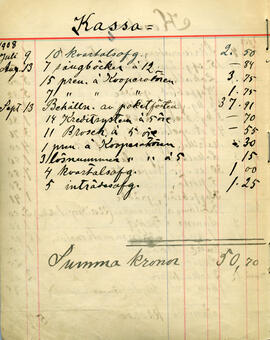 Kassa =
1908
Juli 9 10 kvartalsafg. 2. 50
Aug. 13 7 sångböcker à 12 — 84
15 pren. à Kooperatören 3. 75
7 " " " 1. 75
Sept 13 Behålln. av paketförten 37. 91
14 Kreditsystem à 5 öre — 70
11 Brosch. à 5 öre — 55
1 pren. à Kooperatören — 30
3 lösnummer " " à 5 15
4 kvartalsafg. 1. 00
5 inträdesafg. 1. 25
Summa kronor 50,70